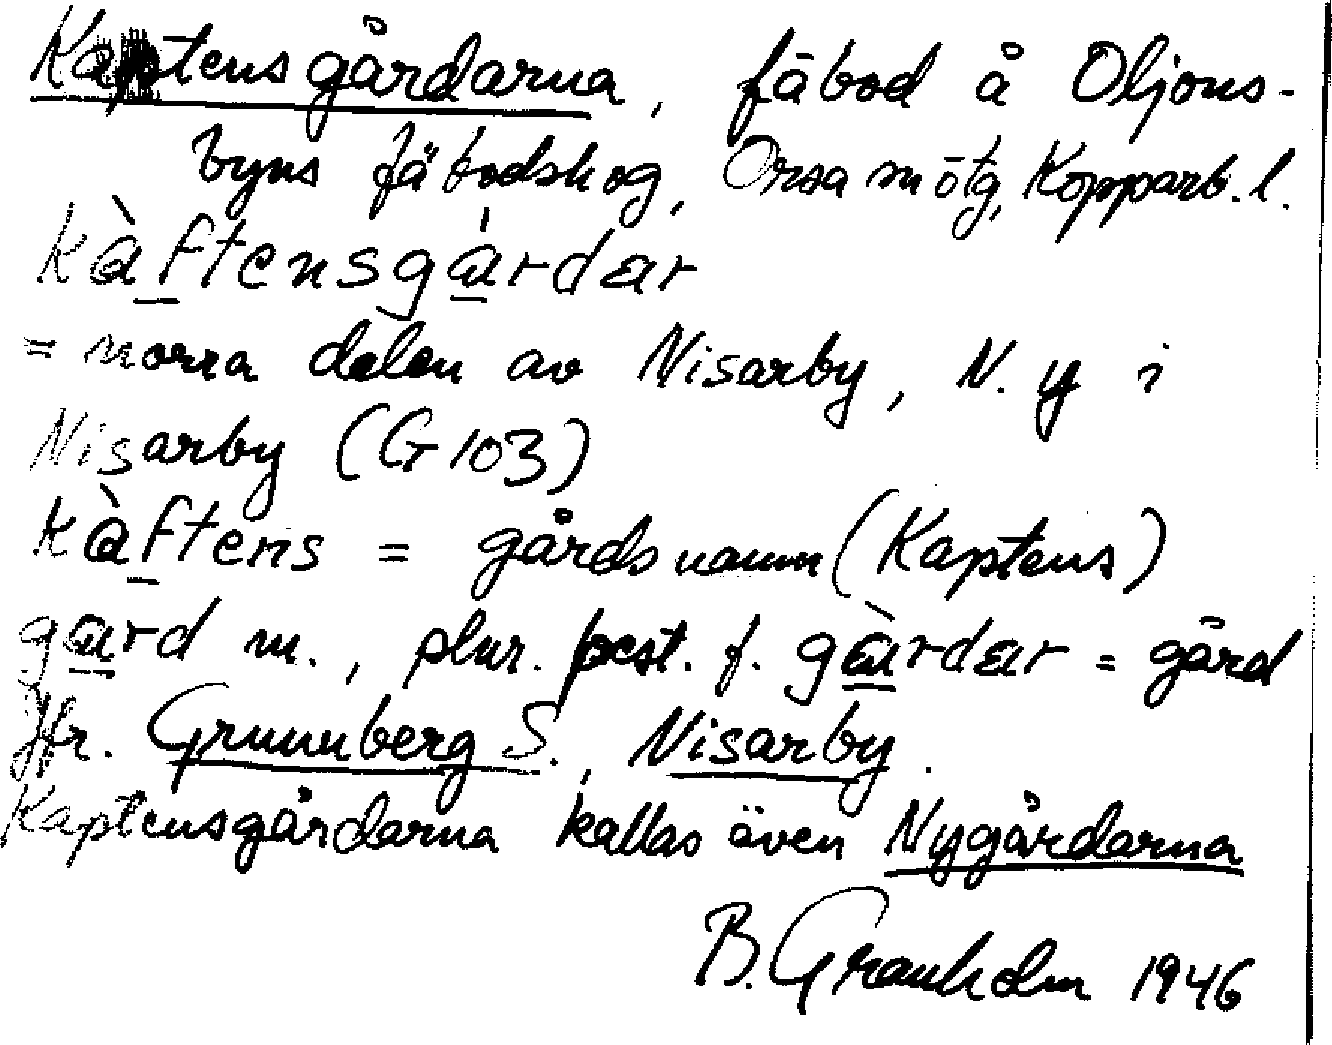 Kaptensgårdarna, fäbod å Oljons-
byns fäbodskog, Orsa sn ötg, Kopparb. l.
kàftensgárdar
= norra delen av Nisarby, N. y i
Nisarby (G 103)
kàftens = gårdsnamn (Kaptens)
gard m., plur. best. f. gàrdar = gård
Jfr. Grunuberg S., Nisarby.
Kaptensgårdarna kallas även Nygårdarna
B. Granholm 1946